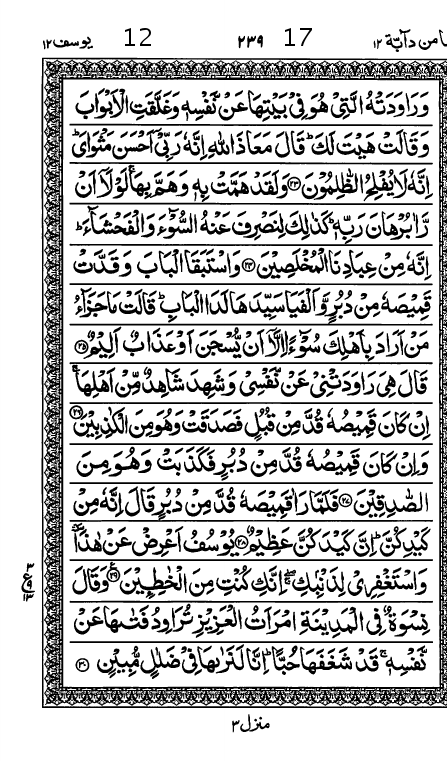 یوسف ۱۲ 12 ۲۳۹ 17 مامن دآبّة ۱۲
وَرَاوَدَتْهُ الَّتِیْ هُوَ فِیْ بَیْتِهَا عَنْ نَّفْسِهٖ وَغَلَّقَتِ الْاَبْوَابَ
وَقَالَتْ هَیْتَ لَكَ ؕ قَالَ مَعَاذَ اللّٰهِ اِنَّهٗ رَبِّیْۤ اَحْسَنَ مَثْوَایَ ؕ
اِنَّهٗ لَا یُفْلِحُ الظّٰلِمُوْنَ ﴿۲۳﴾ وَلَقَدْ هَمَّتْ بِهٖ ۚ وَهَمَّ بِهَا ۚ لَوْلَاۤ اَنْ
رَّاٰ بُرْهَانَ رَبِّهٖ ؕ كَذٰلِكَ لِنَصْرِفَ عَنْهُ السُّوْٓءَ وَالْفَحْشَآءَ ؕ
اِنَّهٗ مِنْ عِبَادِنَا الْمُخْلَصِیْنَ ﴿۲۴﴾ وَاسْتَبَقَا الْبَابَ وَقَدَّتْ
قَمِیْصَهٗ مِنْ دُبُرٍ وَّاَلْفَیَا سَیِّدَهَا لَدَا الْبَابِ ؕ قَالَتْ مَا جَزَآءُ
مَنْ اَرَادَ بِاَهْلِكَ سُوْٓءًا اِلَّاۤ اَنْ یُّسْجَنَ اَوْ عَذَابٌ اَلِیْمٌ ﴿۲۵﴾
قَالَ هِیَ رَاوَدَتْنِیْ عَنْ نَّفْسِیْ وَشَهِدَ شَاهِدٌ مِّنْ اَهْلِهَا ۚ
اِنْ كَانَ قَمِیْصُهٗ قُدَّ مِنْ قُبُلٍ فَصَدَقَتْ وَهُوَ مِنَ الْكٰذِبِیْنَ ﴿۲۶﴾
وَاِنْ كَانَ قَمِیْصُهٗ قُدَّ مِنْ دُبُرٍ فَكَذَبَتْ وَهُوَ مِنَ
الصّٰدِقِیْنَ ﴿۲۷﴾ فَلَمَّا رَاٰ قَمِیْصَهٗ قُدَّ مِنْ دُبُرٍ قَالَ اِنَّهٗ مِنْ
كَیْدِكُنَّ ؕ اِنَّ كَیْدَكُنَّ عَظِیْمٌ ﴿۲۸﴾ یُوْسُفُ اَعْرِضْ عَنْ هٰذَا ٚ
وَاسْتَغْفِرِیْ لِذَنْۢبِكِ ۖۚ اِنَّكِ كُنْتِ مِنَ الْخٰطِـِٕیْنَ ﴿۲۹﴾ وَقَالَ
نِسْوَةٌ فِی الْمَدِیْنَةِ امْرَاَتُ الْعَزِیْزِ تُرَاوِدُ فَتٰىهَا عَنْ
نَّفْسِهٖ ۚ قَدْ شَغَفَهَا حُبًّا ؕ اِنَّا لَنَرٰىهَا فِیْ ضَلٰلٍ مُّبِیْنٍ ﴿۳۰﴾
منزل ۳